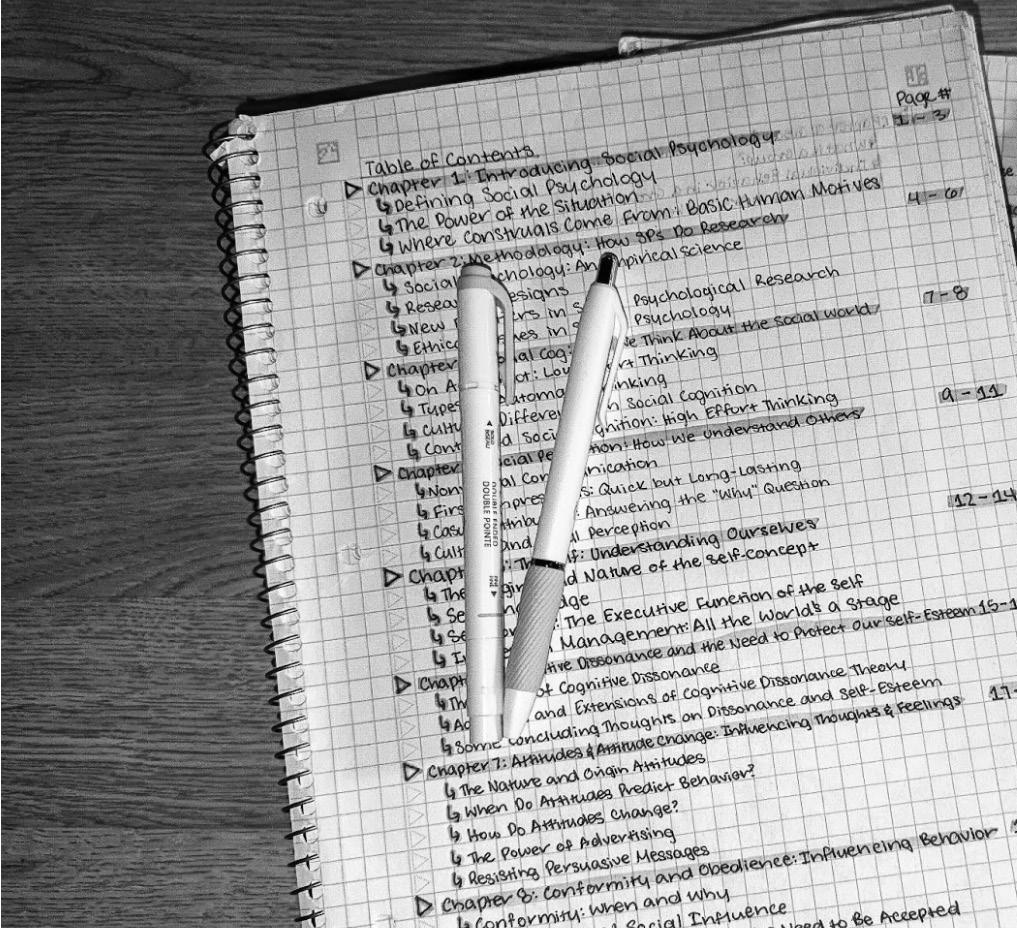 Page #
Table of Contents
Chapter 1: Introducing Social Psychology 1-3
Defining Social Psychology
The Power of the Situation
Where Construals Come From: Basic Human Motives
Chapter 2: Methodology: How SPs Do Research 4-6
Social chology: An mpirical Science
Resea esigns
New ers in S Psychological Research
Ethic es in S Psychology
Chapter ial Cog e Think About the Social World 7-8
On A ot: Low rt Thinking
Types utoma inking
Cultu Differe n Social Cognition
Cont d Soci gnition: High Effort Thinking
Chapter cial Pe tion: How We Understand Others 9-11
Nonv al Com nication
Firs mpres s: Quick but Long-Lasting
Casu ttribu : Answering the "Why" Question
Cultu and l Perception
Chapt : Th lf: Understanding Ourselves 12-14
The gin d Nature of the Self-Concept
Se n ge
Se o : The Executive Function of the Self
I Management: All the World's a Stage
Chapt tive Dissonance and the Need to Protect Our Self-Esteem 15-1
Th of Cognitive Dissonance
Ad and Extensions of Cognitive Dissonance Theory
Some Concluding Thoughts on Dissonance and Self-Esteem
Chapter 7: Attitudes & Attitude Change: Influencing Thoughts & Feelings 17-
The Nature and Origin Attitudes
When Do Attitudes Predict Behavior?
How Do Attitudes Change?
The Power of Advertising
Resisting Persuasive Messages
Chapter 8: Conformity and Obedience: Influencing Behavior
Conformity: When and Why
Social Influence
Need to Be Accepted
DOUBLE ENDED
DOUBLE POINTE